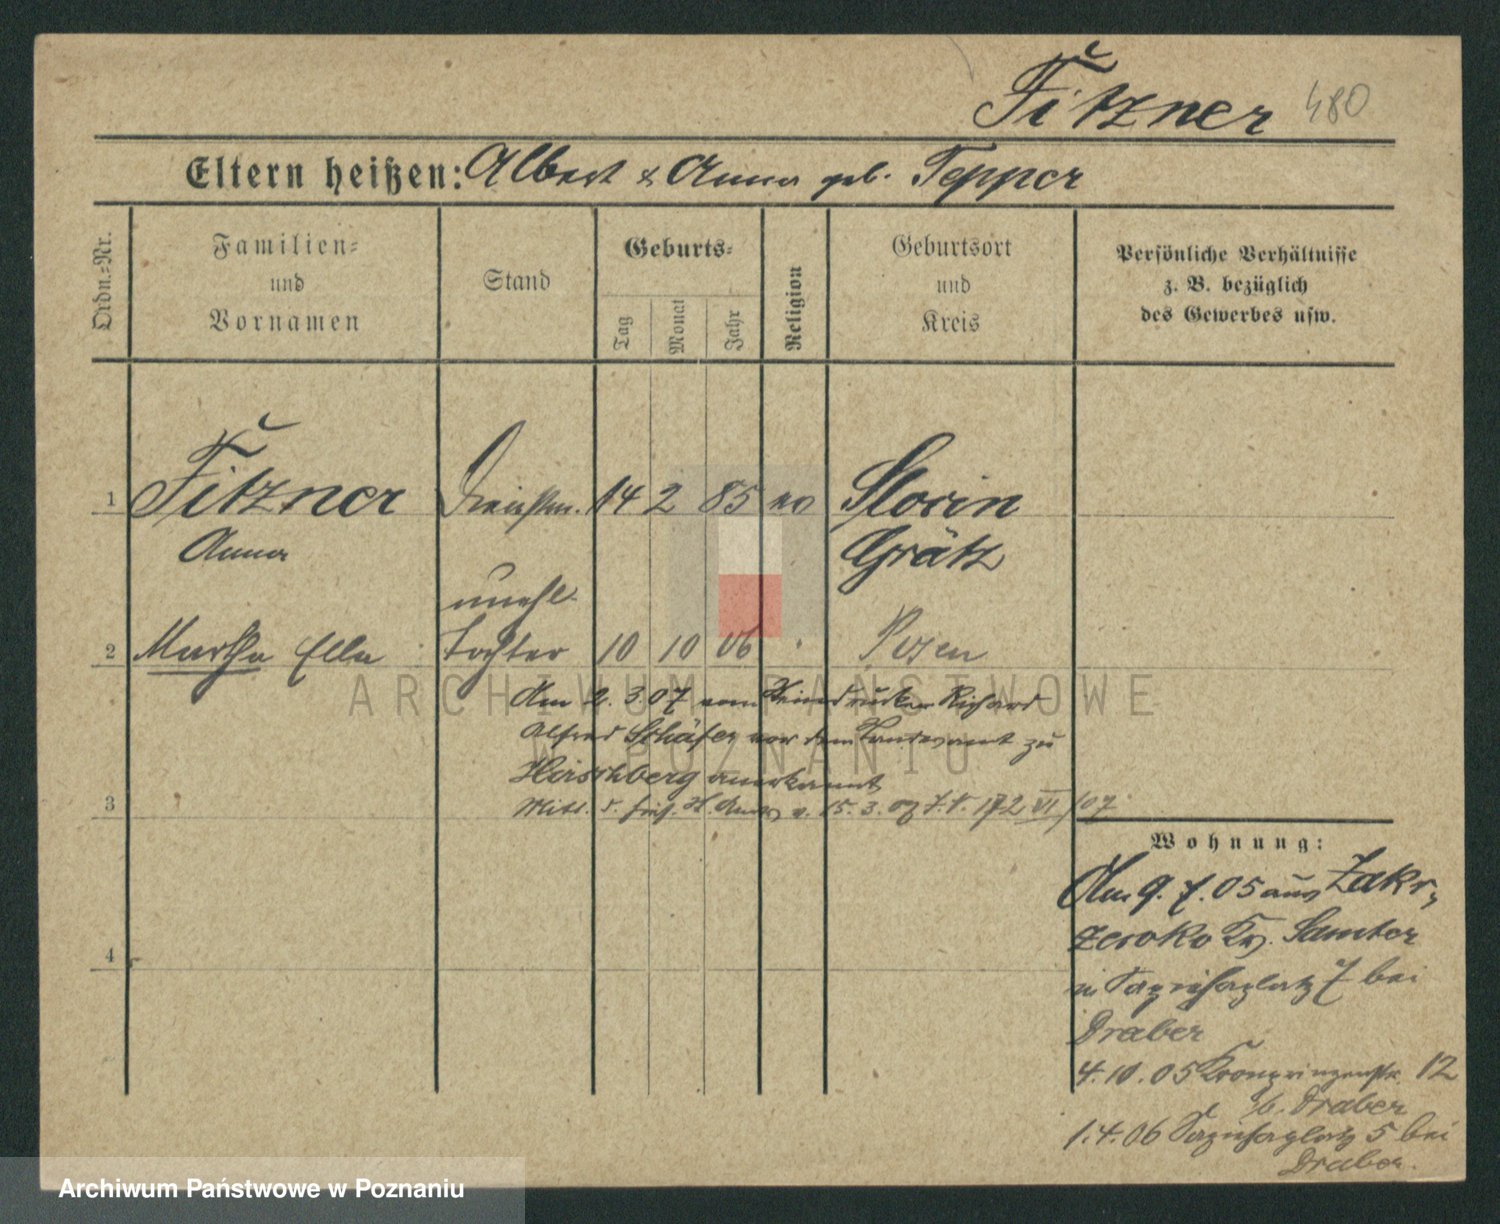 Fitzner 480
Eltern heißen: Albert & Anna geb. Tepper
Ordn.=Nr.
Familien=
und
Vornamen
Stand
Geburts=
Tag
Monat
Jahr
Religion
Geburtsort
und
Kreis
Persönliche Verhältnisse
z. B. bezüglich
des Gewerbes usw.
1 Fitzner 14 2 85 Slocin
Anna Grätz
unehl.
2 Martha Ella Tochter 10 10 06 Posen
Am 2. 3. 07 vom Steindrucker Richard
Alfred Schäfer vor dem Standesamt zu
Hirschberg anerkannt
3 15. 3. 07 172 VI/07
4
Wohnung:
Am 9. 7. 05 aus Zakr,
zewko Kr. Samter
7 bei
Draber
4. 10. 05 Kronprinzenstr. 12
b. Draber
1. 4. 06 5 bei
Draber.
ARCHIWUM PAŃSTWOWE
W POZNANIU
Archiwum Państwowe w Poznaniu